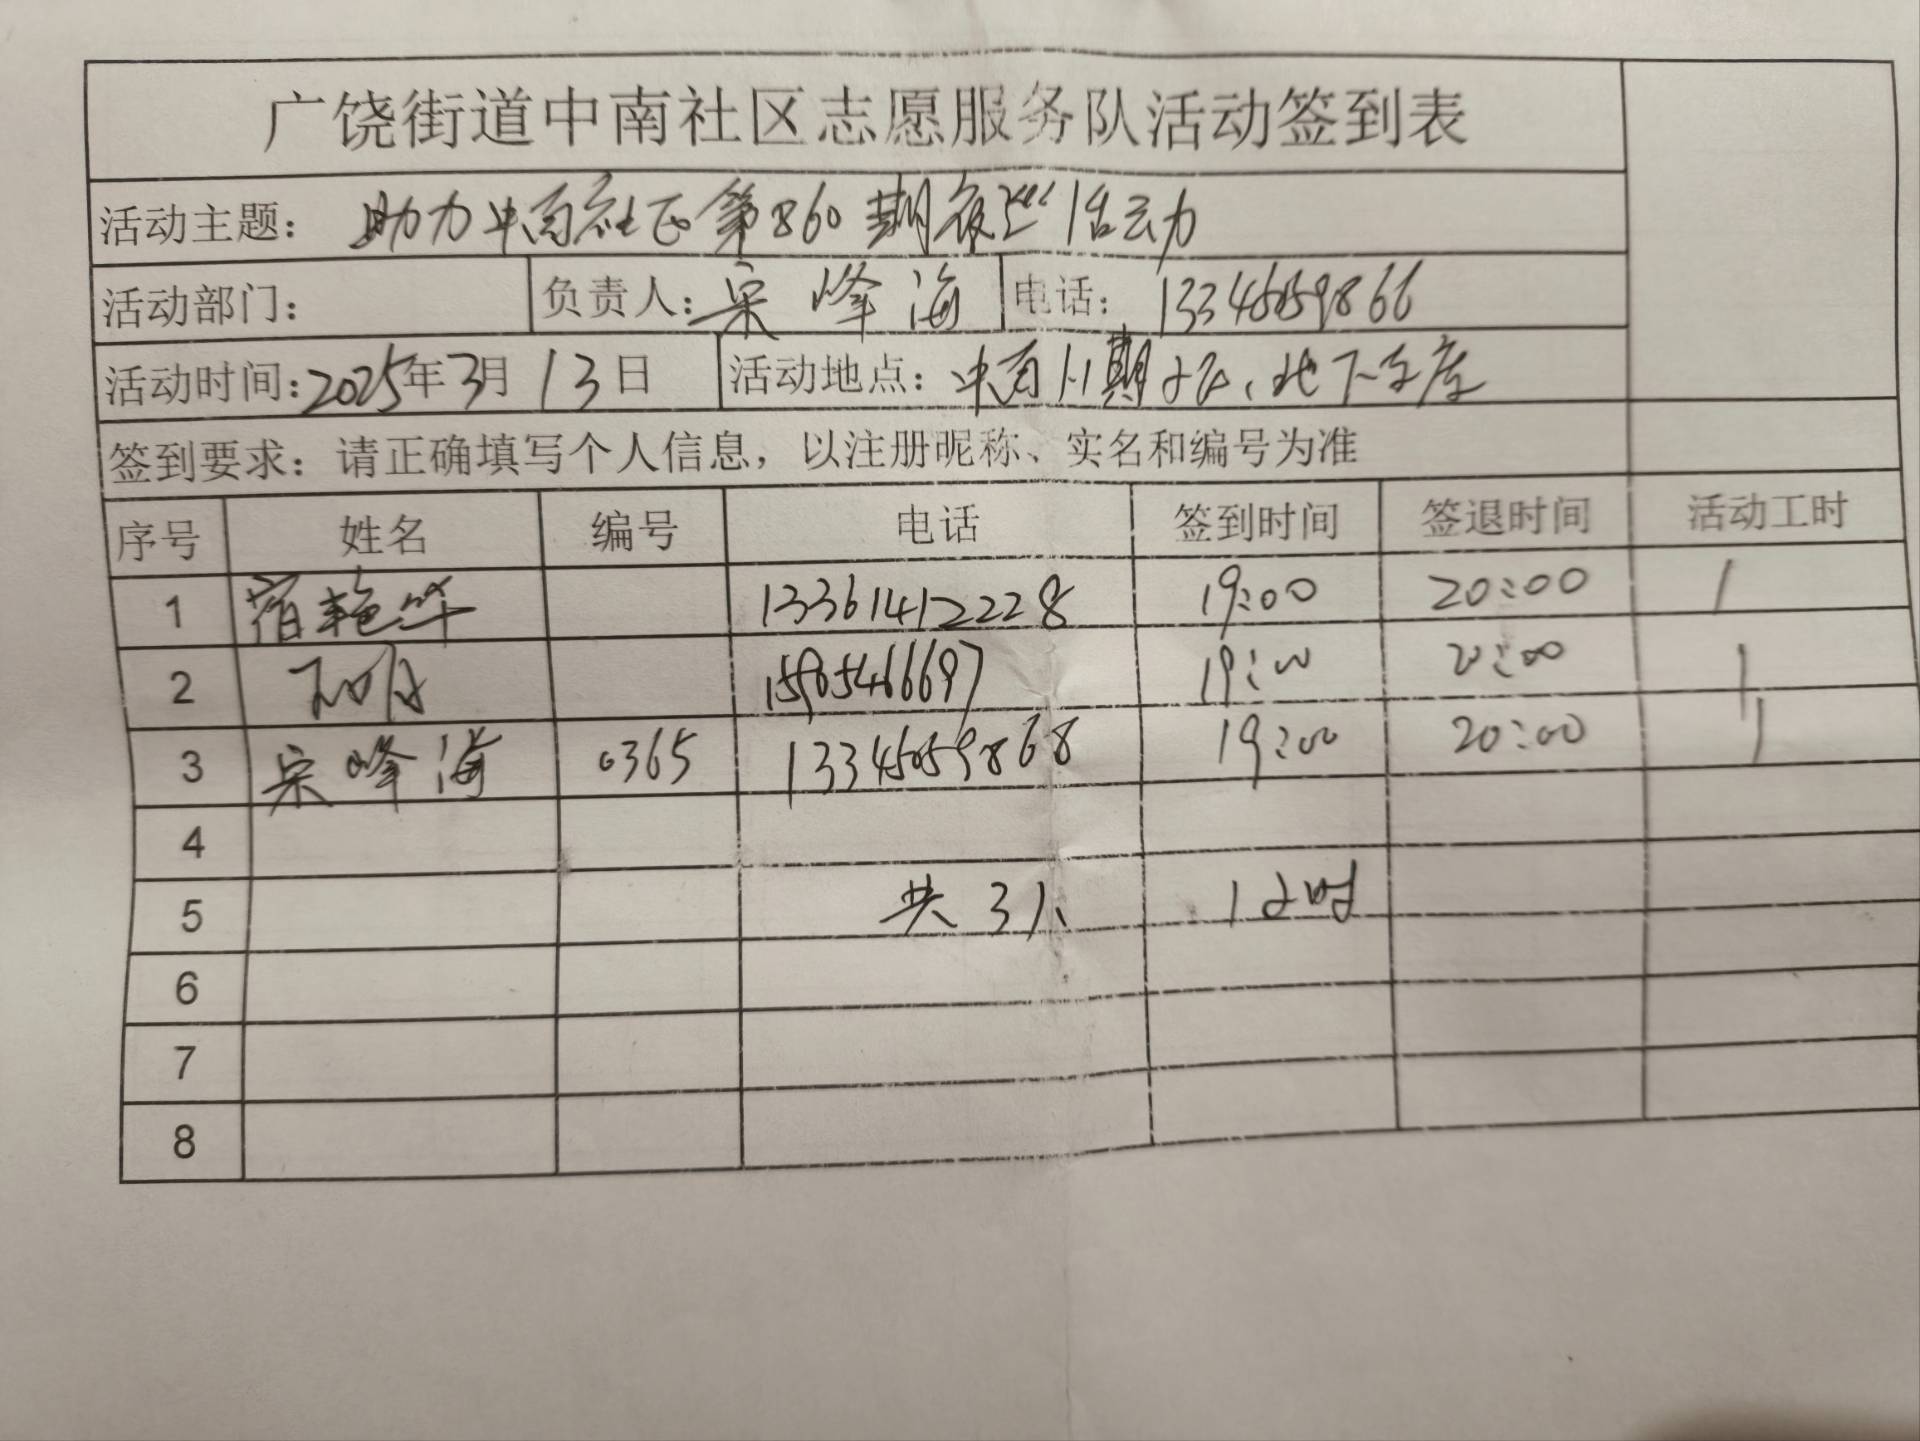 广饶街道中南社区志愿服务队活动签到表
活动主题： 助力中南社区第860期夜巡活动
活动部门： 负责人：宋峰海 电话：13345059866
活动时间：2025年3月13日 活动地点：中南 期小区、地下车库
签到要求：请正确填写个人信息，以注册昵称、实名和编号为准
序号 姓名 编号 电话 签到时间 签退时间 活动工时
1 宿艳华 13361412228 19:00 20:00 1
2 19:00 20:00 1
3 宋峰海 0365 13345059868 19:00 20:00 1
4
5 共3人 1小时
6
7
8